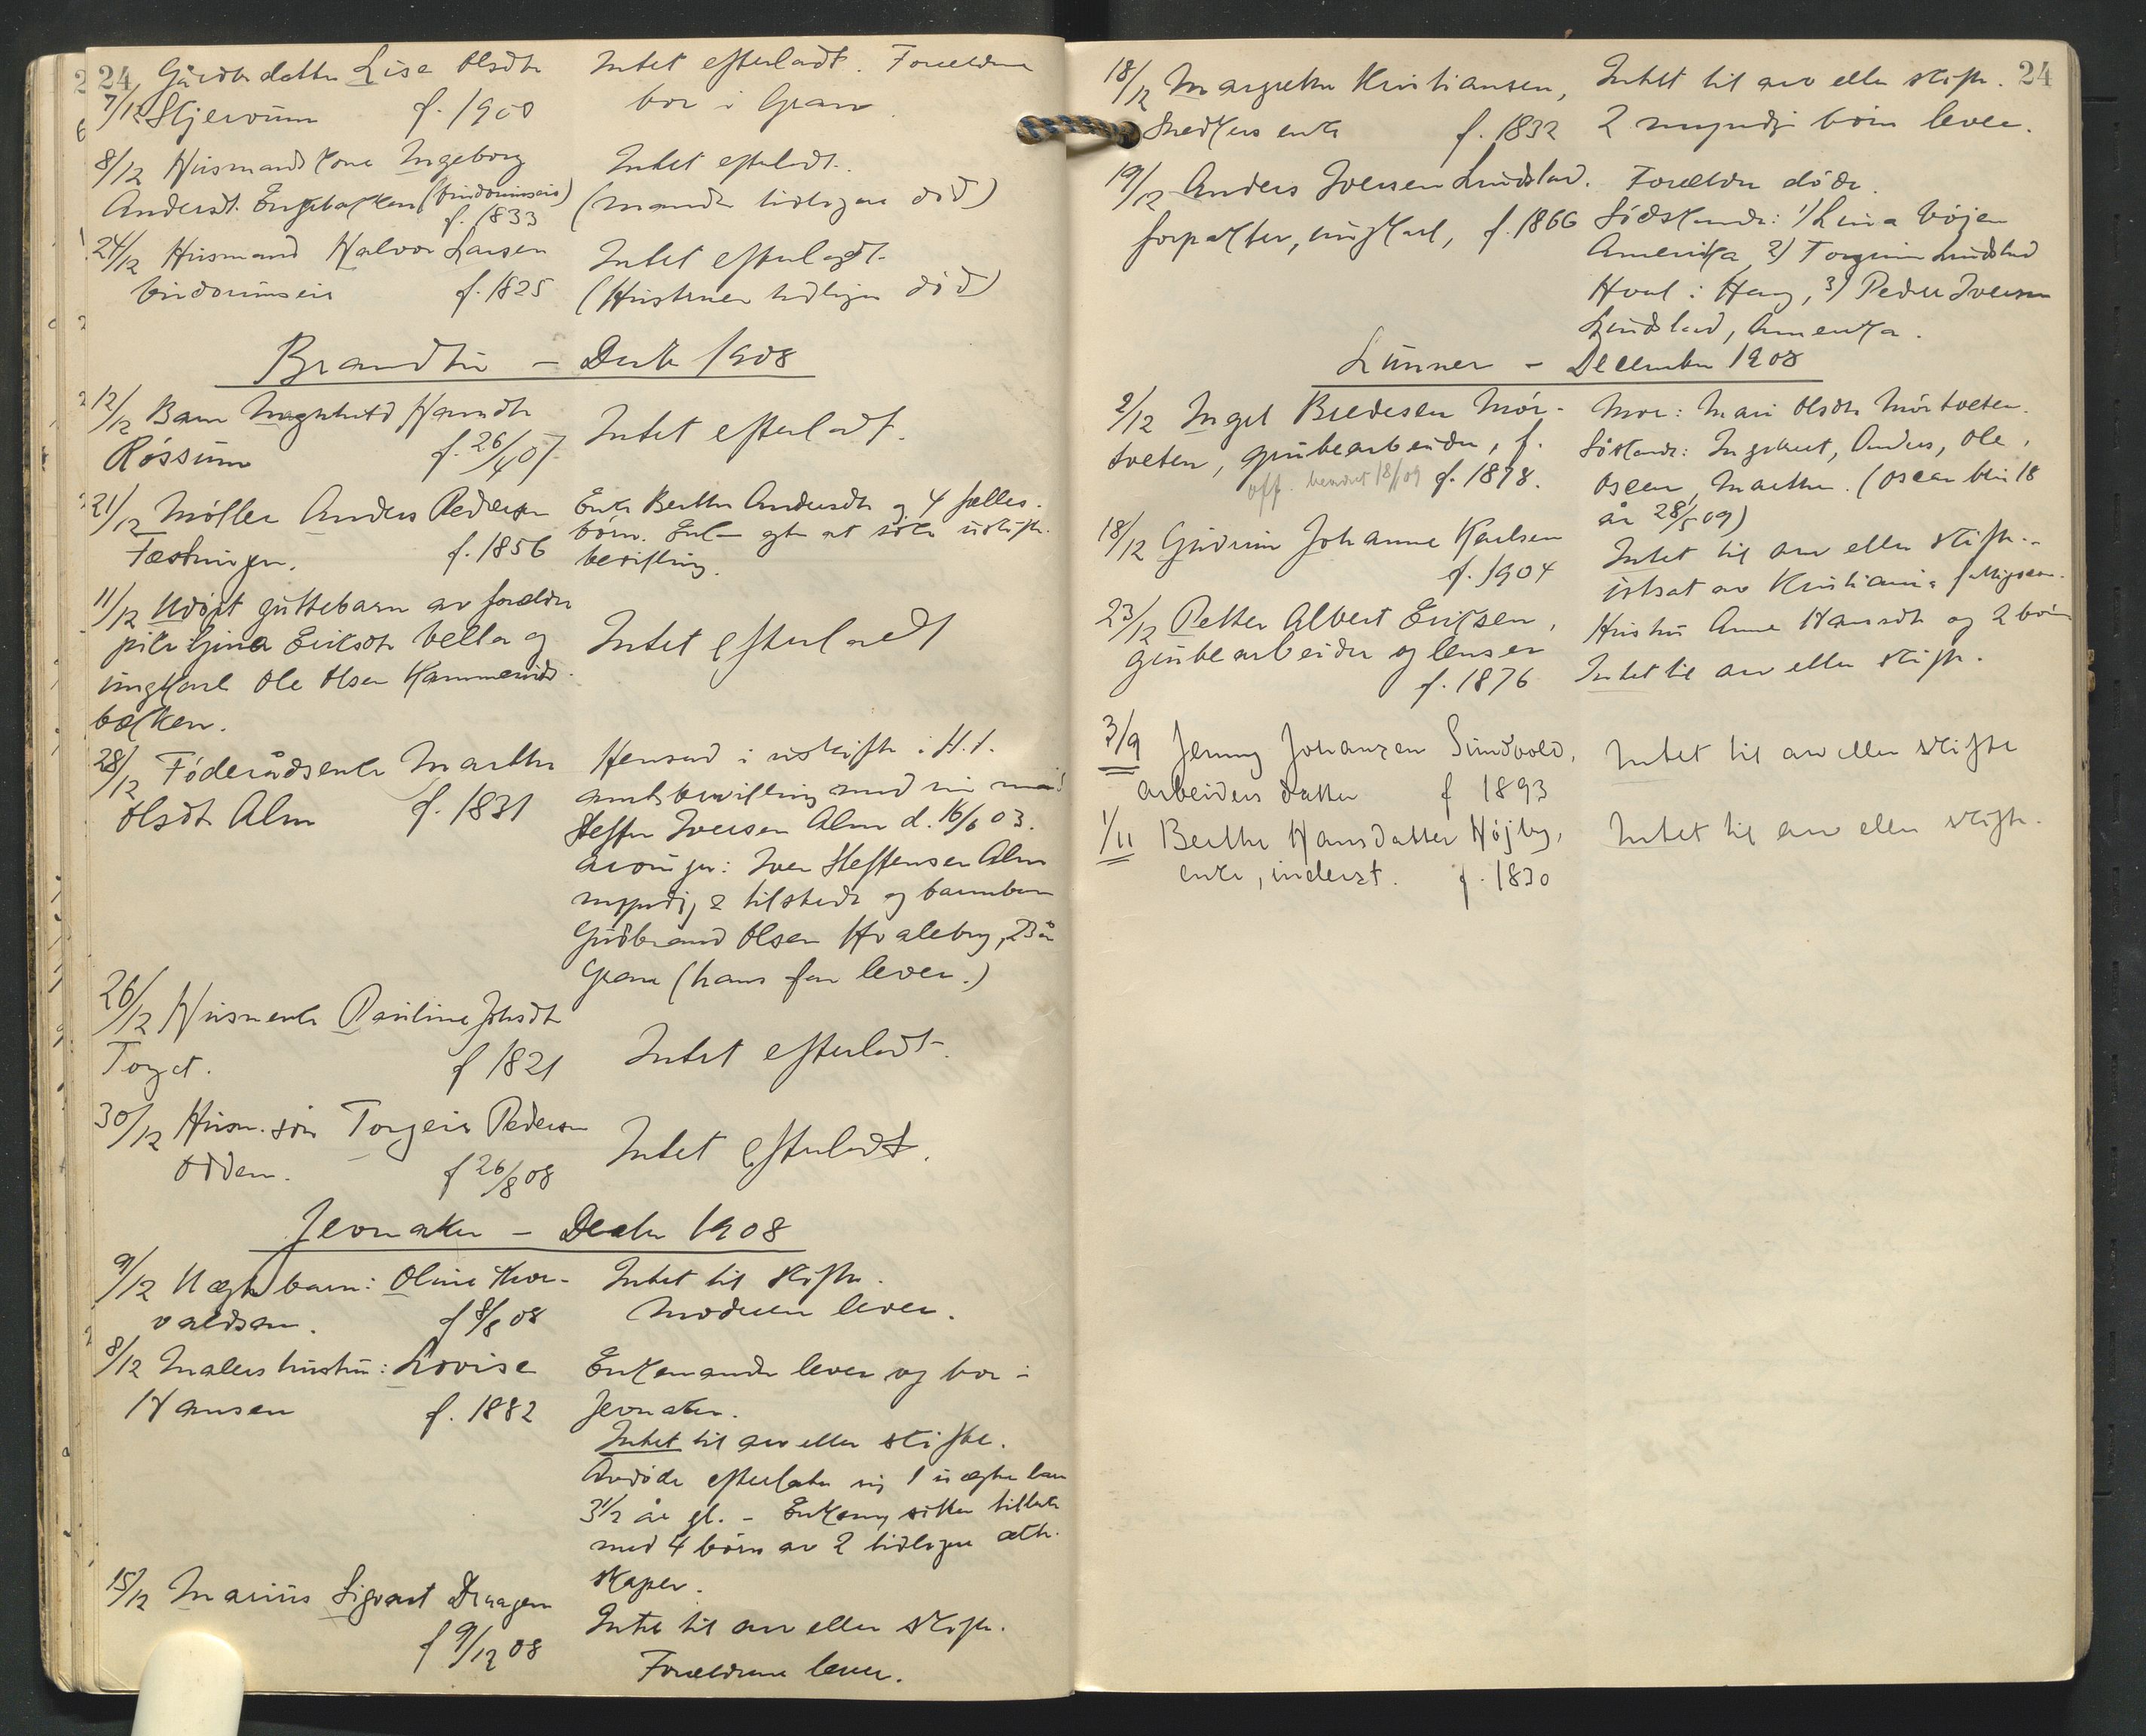 24 Gårdb. datter Lise Olsdtr
7/12 Skjervum f. 1900
Intet efterladt. Forældrene
bor i Gran
8/12 Husmandskone Ingeborg
Andersdt. Engebakken (Vindorumseie)
f. 1833
Intet efterladt.
(manden tidligere død)
24/12 Husmand Halvor Larsen
Vindorumseie f. 1825
Intet efterladt.
(Hustruen tidligere død)
Brandbu – Decbr 1908
12/12 Barn Hansdtr
Røssum f. 26/4 07
Intet efterladt.
21/12 Møller Anders Pedersen
Fæstningen. f. 1856
Enke Berthe Andersdtr og 4 fælles-
børn. Enken agter at søke uskifte-
bevilling.
11/12 Udøpt guttebarn av forældre
pike Gina Eriksdtr Vella og
ungkarl Ole Olsen Kammerud-
bakken.
Intet efterladt
28/12 Føderådsenke Marthe
Olsdtr Alm f. 1831
Hensad i uskifte i H. t.
amtsbevilling med sin mand
Steffen Iversen Alm d. 16/6 03.
Arvinger: Iver Steffensen Alm
myndig & tilstede og barnebarn
Gudbrand Olsen Hvaleby, 23 år
Gran (hans far lever.)
26/12 Husm.enke Pauline Johsdtr
Torget. f 1821
Intet efterladt.
30/12 Husm. søn Torgeir Pedersen
Odden. f 26/8 08
Intet efterladt.
Jevnaker – Decbr 1908
9/12 Uægte barn: Oline Thor-
valdsen. f 8/8 08
Intet til skifte.
Moderen lever.
8/12 Malers hustru: Lovise
Hansen f. 1882
Enkemanden lever og bor i
Jevnaker.
Intet til arv eller skifte.
Avdøde efterlater sig 1 uægte barn
3 1/2 år gl. – Enkem. sitter tilbake
med 4 børn av 2 tidligere ækte-
skaper.
15/12 Marius Sigvart Draagen
f 9/12 08
Intet til arv eller skifte.
Forældrene lever.
24
18/12 Margrethe Kristiansen,
Snedkers enke f. 1832
Intet til arv eller skifte.
2 myndige børn lever.
19/12 Anders Iversen Lundstad.
forpakter, ungkarl, f. 1866
Forældre døde.
Sødskende: 1) Lina Bøjen
Amerika 2) Torginn Lundstad
Hval i Haug, 3) Peder Iversen
Lundstad, Amerika.
Lunner – December 1908
2/12 Ingel Bredesen Mør-
tveten, grubearbeider, f.
off. 18/1 09 f. 1878.
Mor: Mari Olsdtr Mørtveten.
Søskende: Ingebret, Anders, Ole,
Oscar, Marthe. (Oscar blir 18
år 28/5 09)
18/12 Gudrun Johanne Karlsen
f. 1904
Intet til arv eller skifte. -
utsat av Kristiania fattigvæsen.
23/12 Petter Albert Eriksen,
grubearbeider og lenser
f. 1876
Hustru Anne Hansdtr og 2 børn
Intet til arv eller skifte.
3/9 Jenny Johanzen Sundvold,
arbeiders datter f 1893
Intet til arv eller skifte
1/11 Berthe Hansdatter Højby,
enke, inderst. f. 1830
Intet til arv eller skifte.